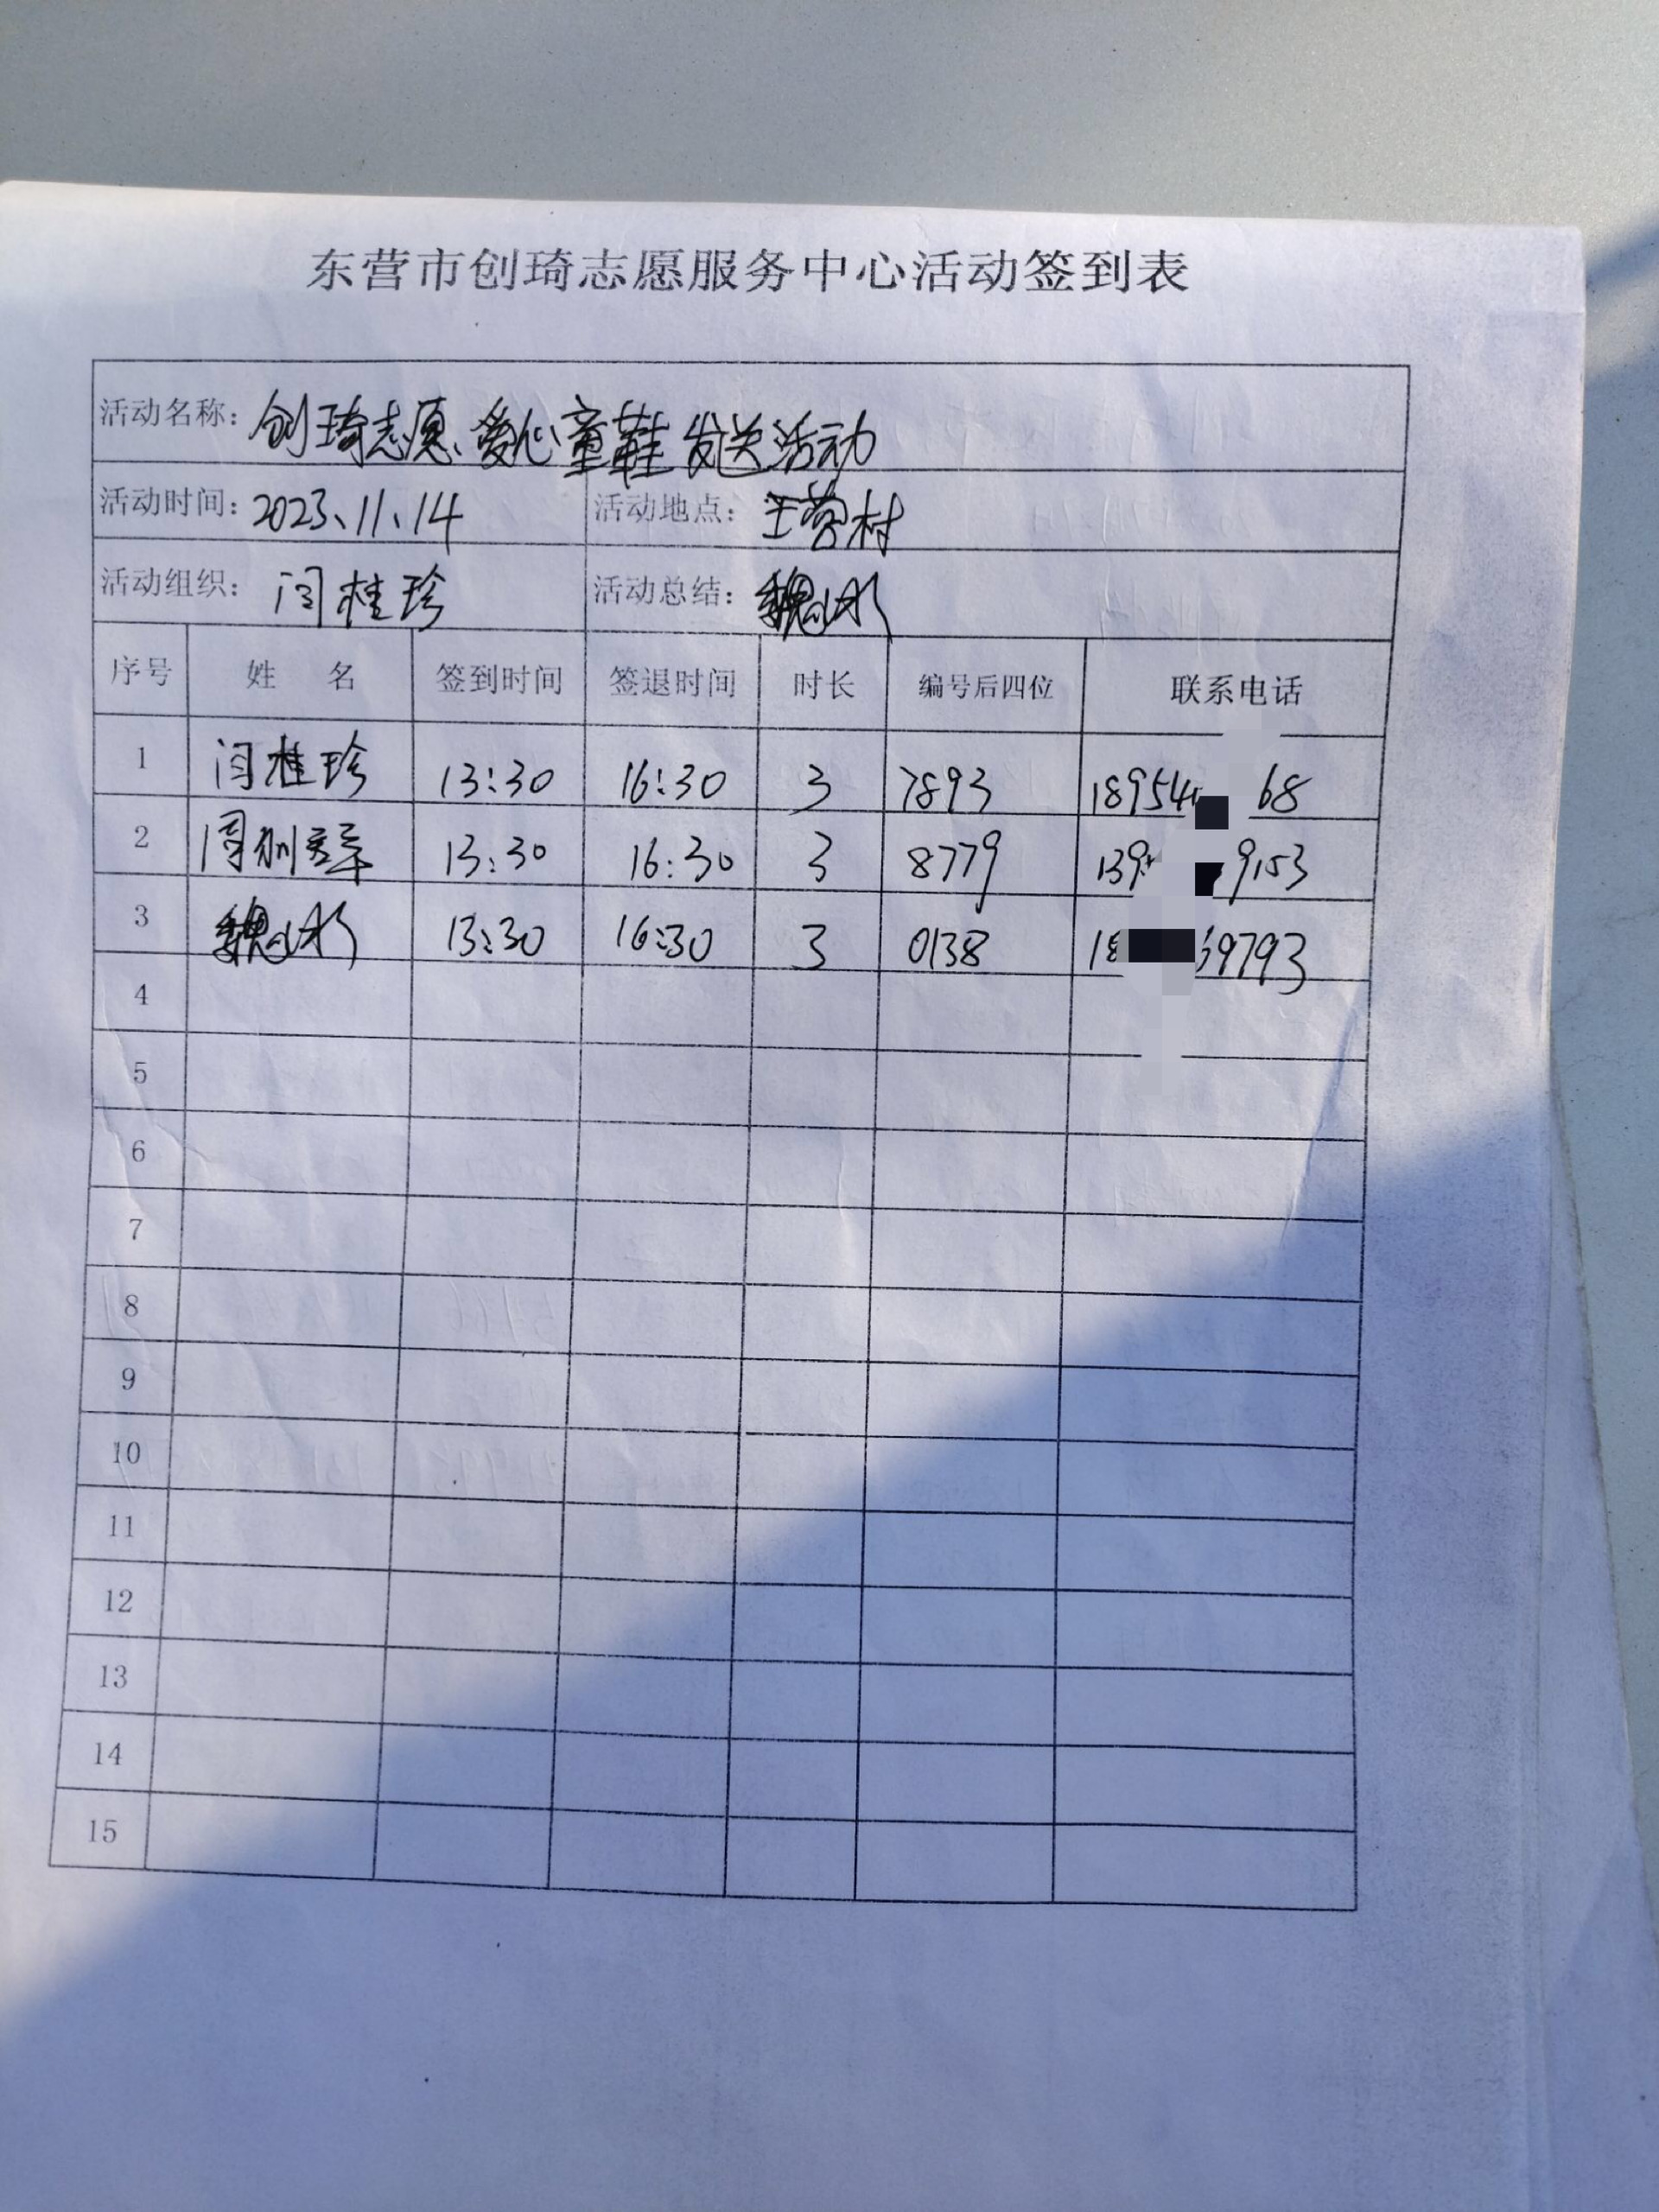 东营市创琦志愿服务中心活动签到表
活动名称：创琦志愿、爱心童鞋发送活动
活动时间：2023、11、14 活动地点：王营村
活动组织：闫桂珍 活动总结：魏冰
序号 姓 名 签到时间 签退时间 时长 编号后四位 联系电话
1 闫桂珍 13:30 16:30 3 7893 18954 68
2 13:30 16:30 3 8779 139 9153
3 魏冰 13:30 16:30 3 0138 18 69793
4
5
6
7
8
9
10
11
12
13
14
15